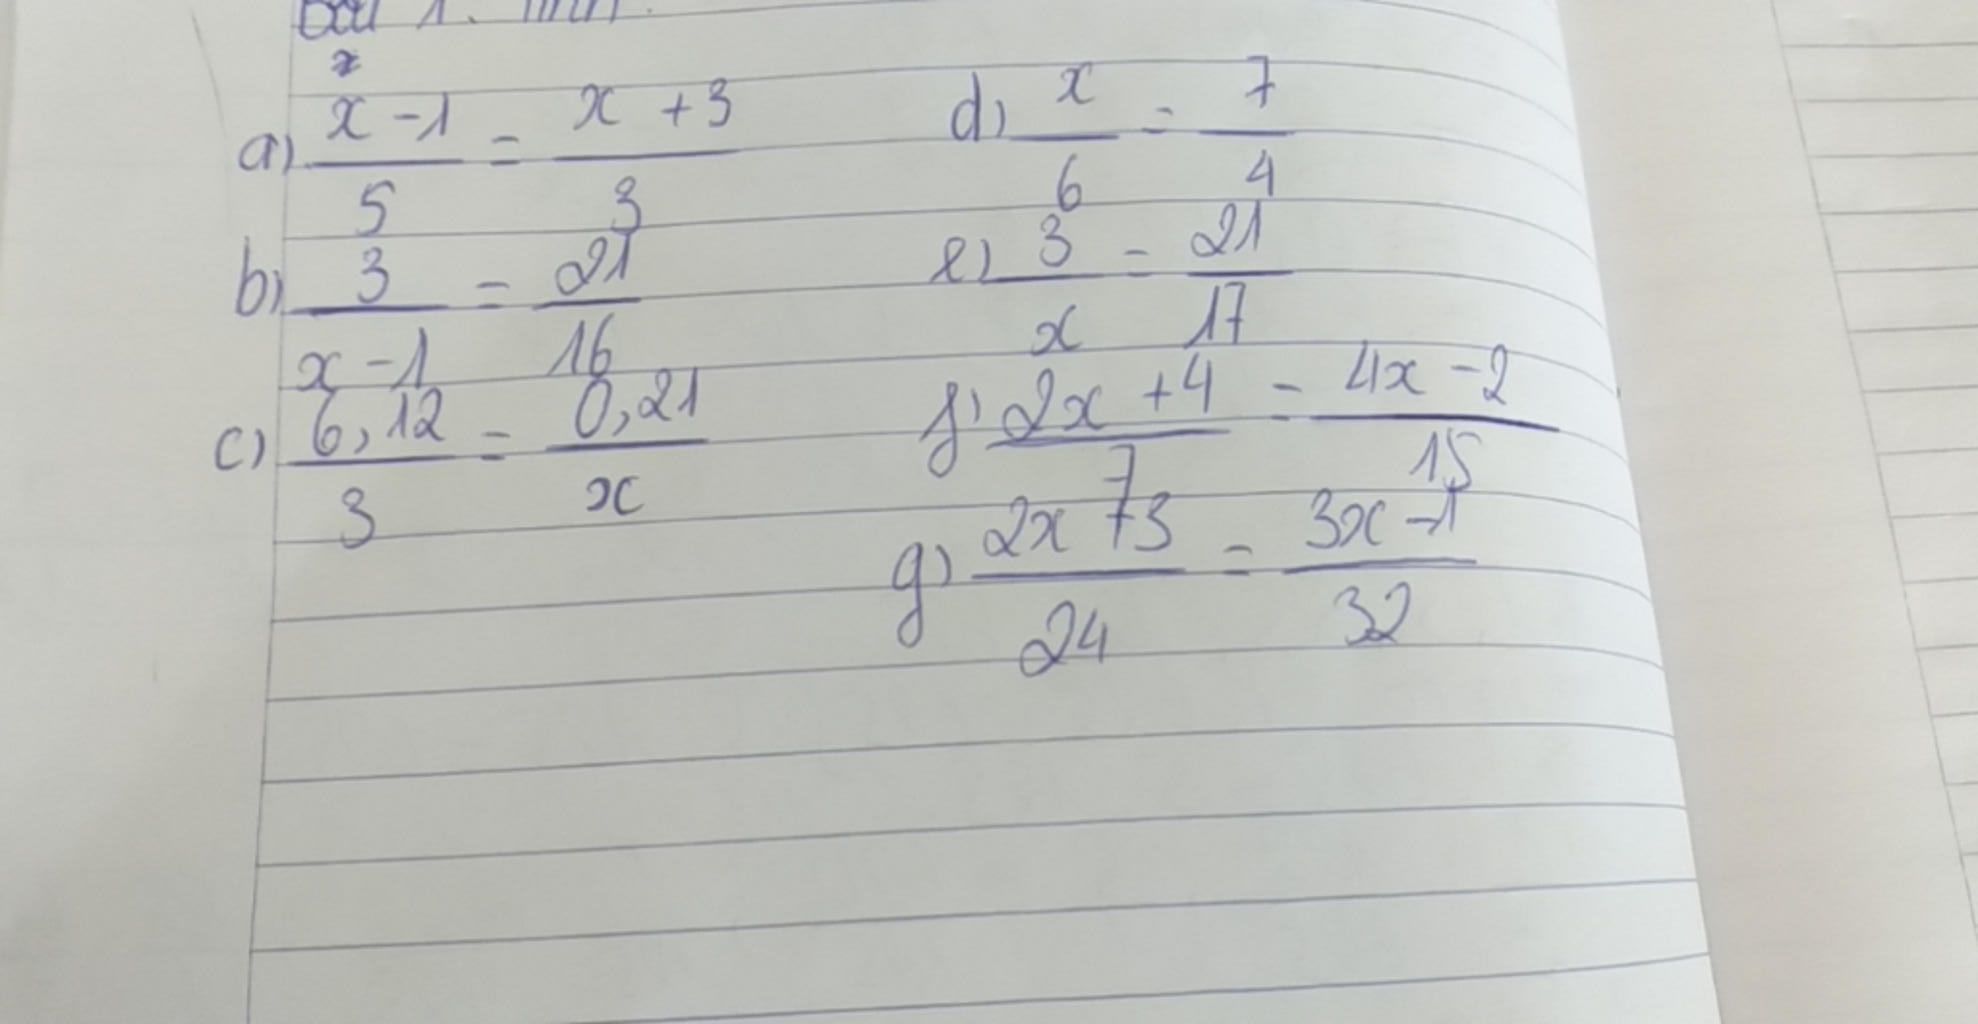 Bài 1. Tính.
a) (x - 1)/5 = (x + 3)/3
b) 3/(x - 1) = 21/16
c) 6,12/3 = 0,21/x
d) x/6 = 7/4
e) 3/x = 21/17
f) (2x + 4)/7 = (4x - 2)/15
g) (2x + 3)/24 = (3x - 1)/32